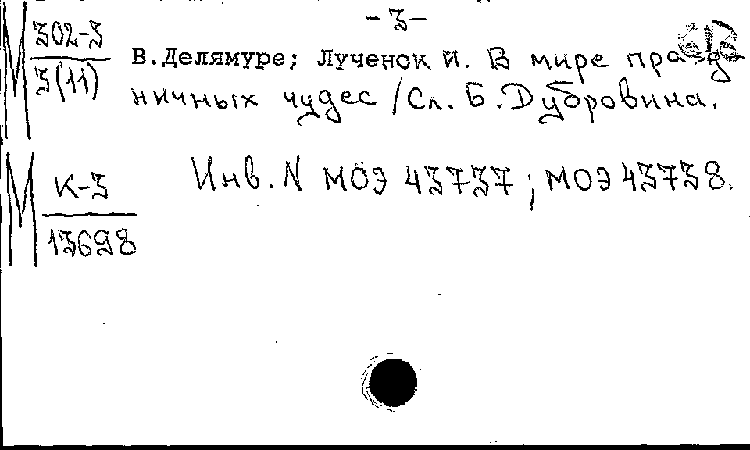 -3-
М 302-3
3(11)
В.Делямуре; Лученок И. В мире празд-
ничных чудес /Сл. Б. Дубровина.
М К-3
13698
Инв. N МОЭ 43737; МОЭ 43738.